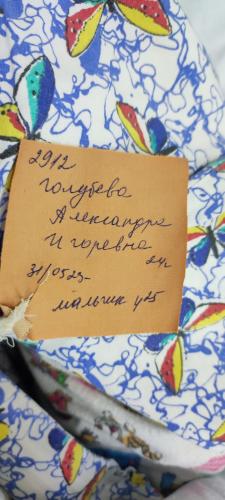 2912
Голубева
Александра
Игоревна
24г
31/0523-
мальчик 425